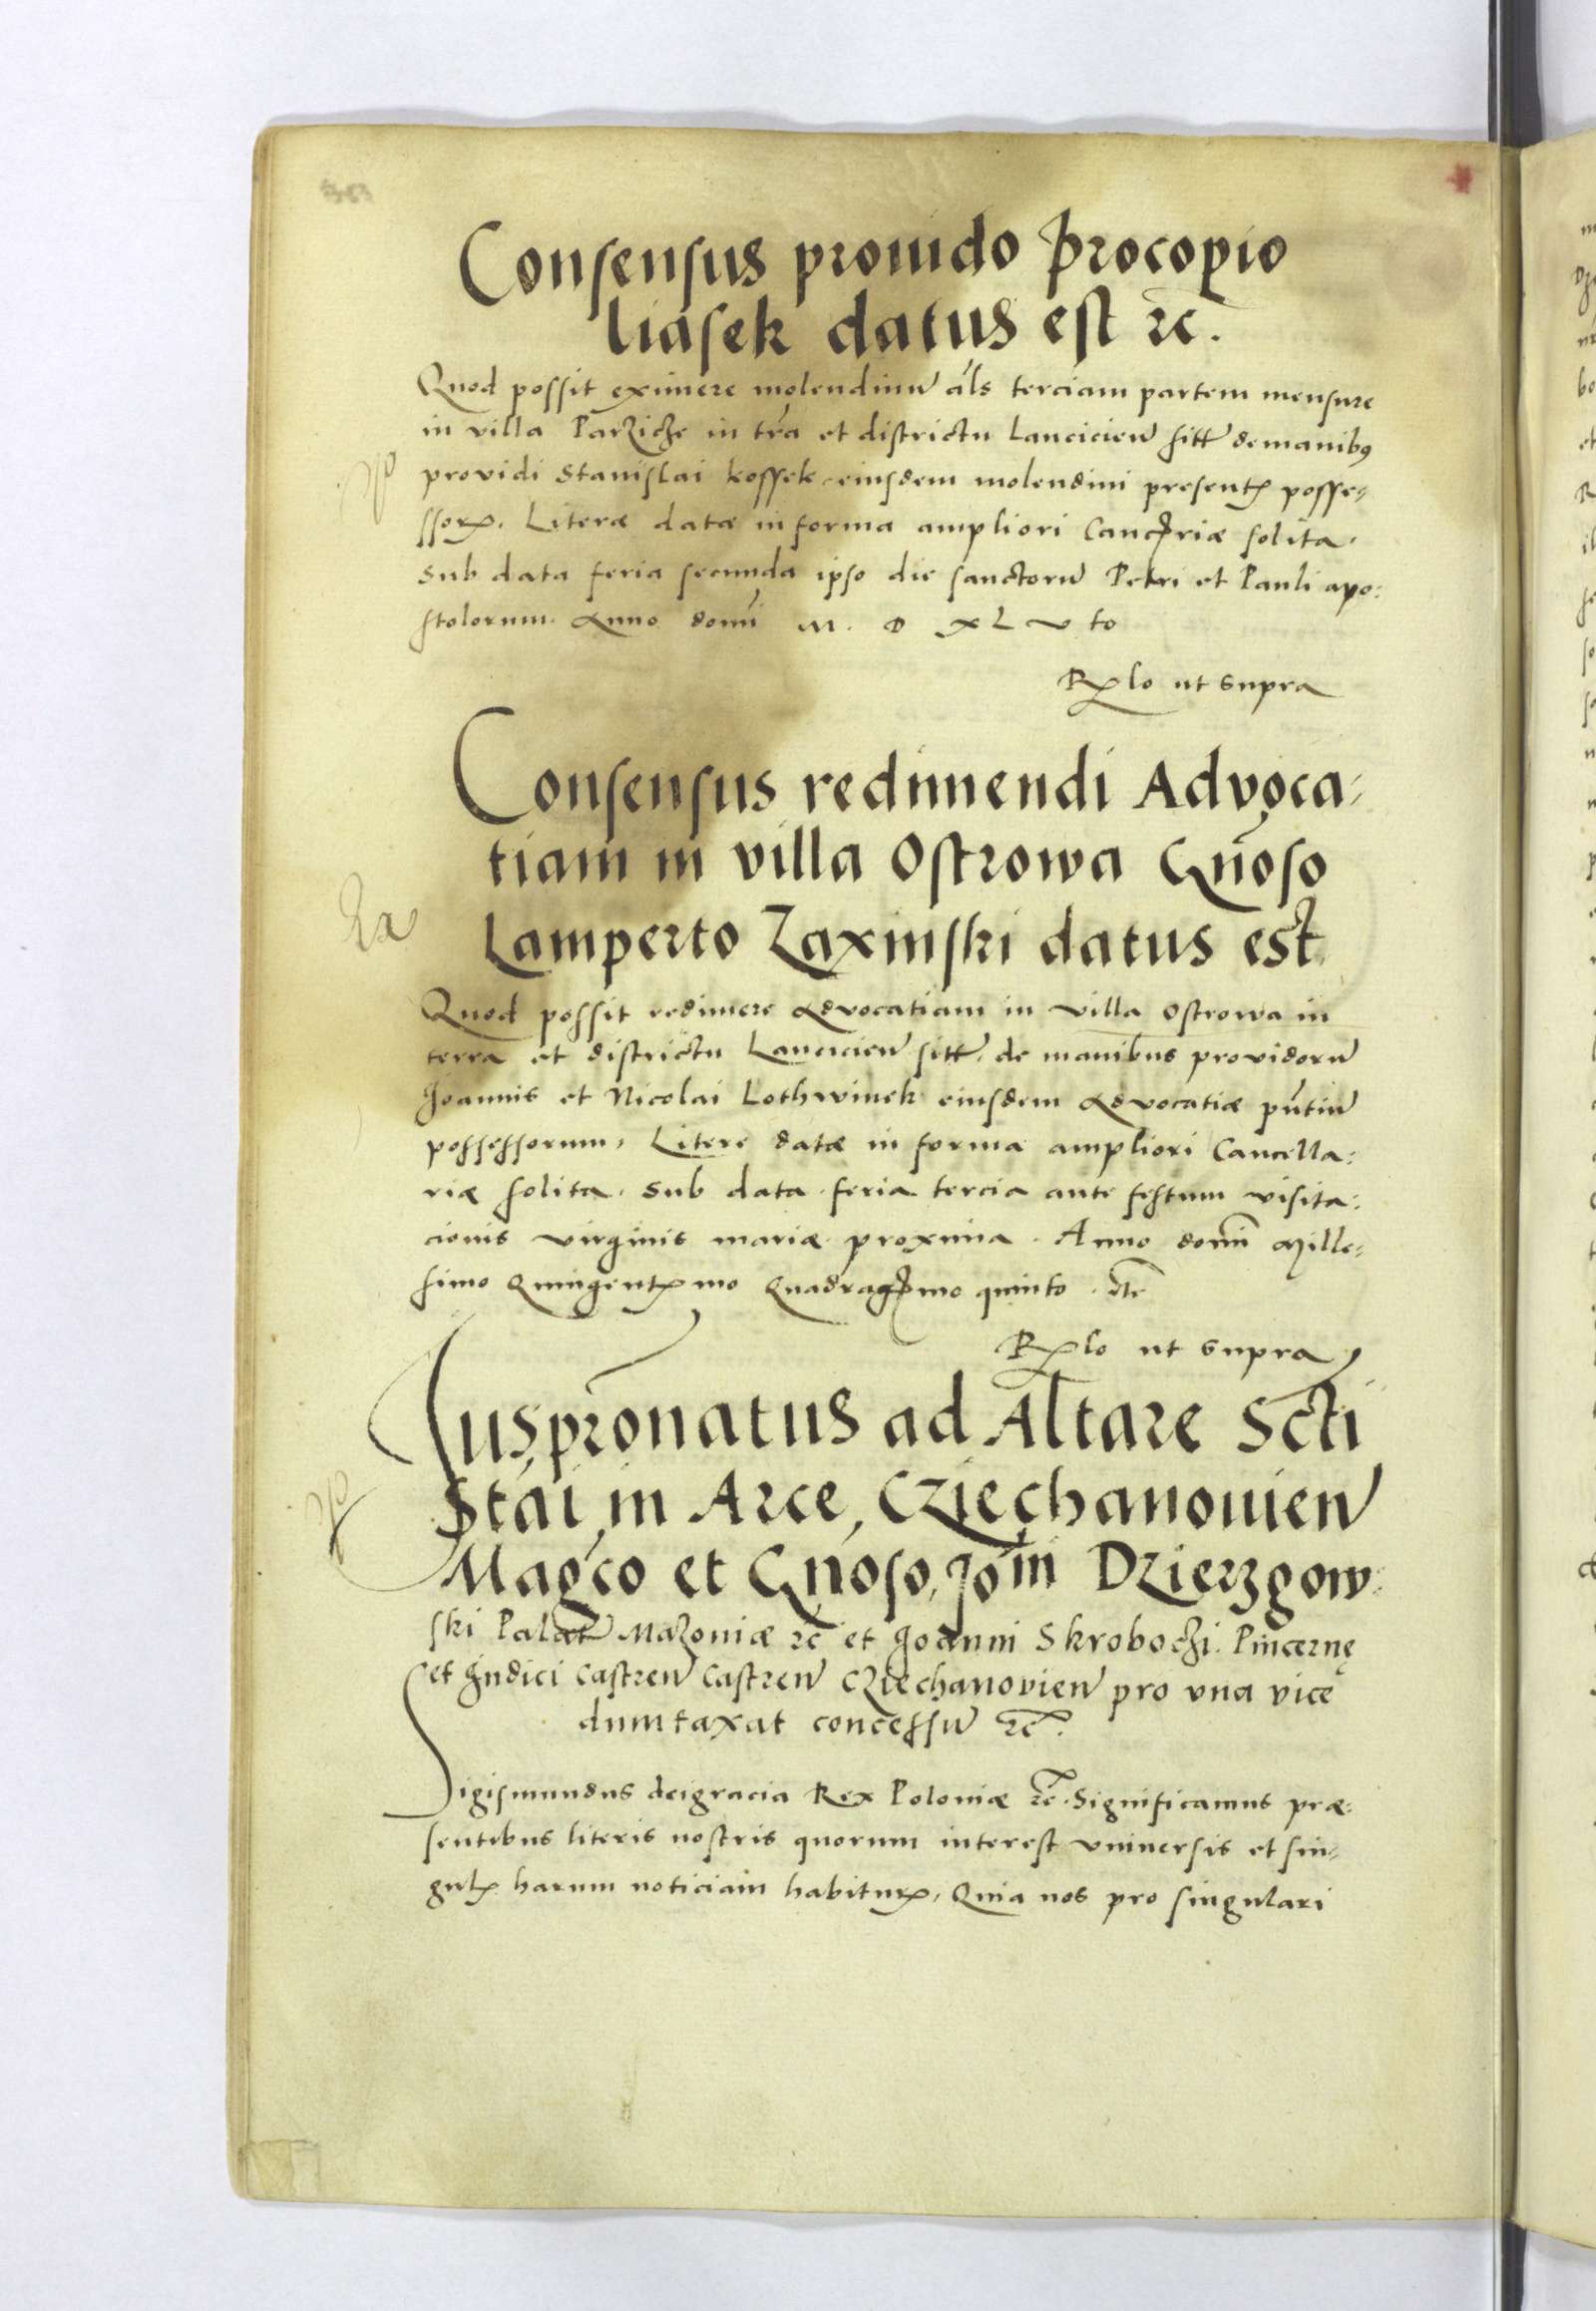 Consensus prouido Procopio
liasek datus est ꝛc.
Quod possit eximere molendinū al̃s terciam partem mensure
in villa Parziche in tr̃a et districtu Lancicieñ sitt̃ de manibꝰ
providi Stanislai kossek eiusdem molendini presentꝭ posse-
ssorꝭ. Literæ datæ in forma ampliori Cancꝭriæ solita.
Sub data feria secunda ipso die sanctorū Petri et Pauli apo:
stolorum. Anno domĩ M. D XL v to
Rꝭlo ut supra
Consensus redimendi Advoca:
tiam in villa Ostrowa Gñoso
Lamperto Zaxinski datus est.
Quod possit redimere Advocatiam in villa Ostrowa in
terra et districtu Lancicieñ sitt̃. de manibus providorū
Joannis et Nicolai Lothwinek eiusdem Advocatiæ pñtiū
possessorum, Litere datæ in forma ampliori Cancella:
riæ solita. Sub data feria tercia ante festum visita:
cionis virginis mariæ proxima. Anno domĩ Mille:
simo Quingentꝭmo Quadragꝭmo quinto. ꝛc̃
Rꝭlo ut supra
Juspr̃onatus ad Altare Scti
Stai, in Arce, Cziechanouieñ
Magco et Gñoso, Joñi Dzierzgow:
ski Palat̃ Mazoniæ ꝛc et Joanni Skrobochi. Pincernę
et Judici Castreñ Castreñ Cziechanovieñ pro vna vice
dumtaxat concessū ꝛc.
Sigismundus deigracia Rex Poloniæ ꝛc̃. Significamus præ:
sentibus literis nostris quorum interest vniuersis et sin-
gulꝭ harum noticiam habiturꝭ, Quia nos pro singulari